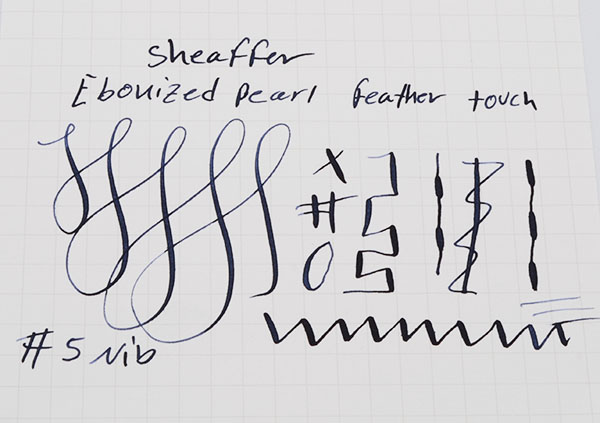 Sheaffer
Ebonized pearl feather touch
X
#
O
# 5 Nib